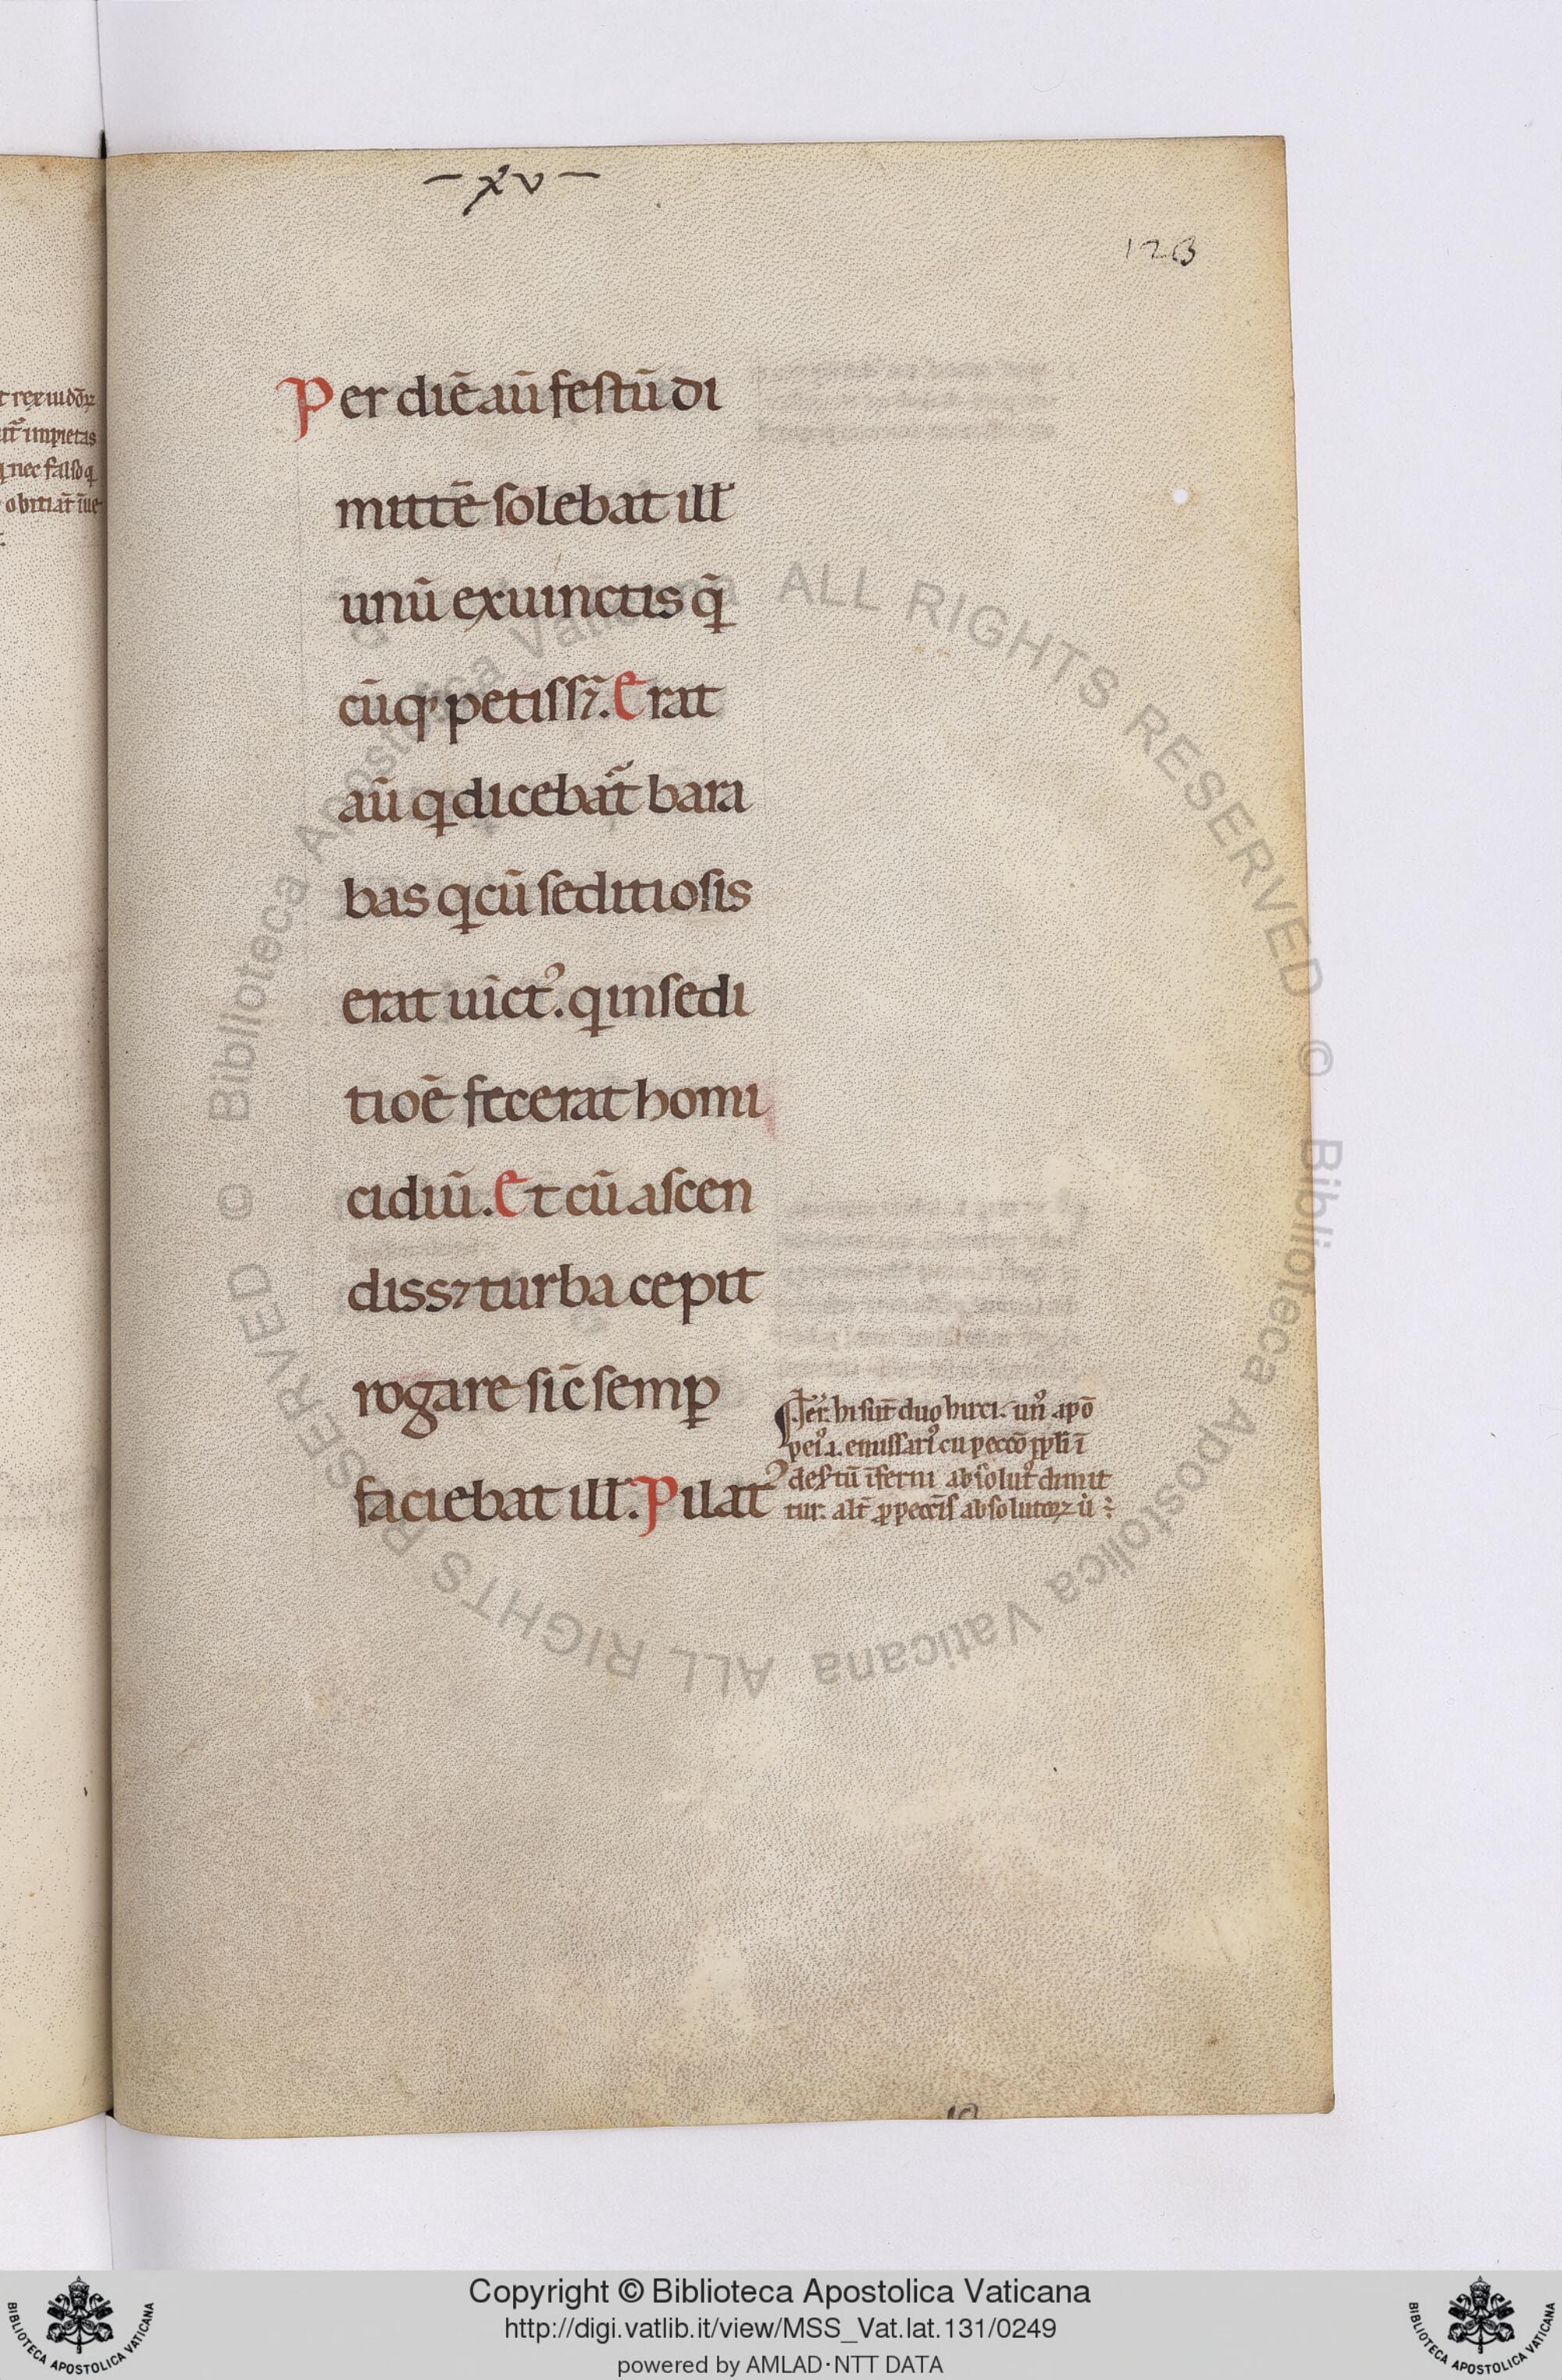 t reẹx iudōꝝ
nec falso q
- xv -
123
Per diē aū festū di
mittē solebat ill̄
unū ex uinctis q̄
cūq; petissꝫ̄. Erat
aū q dicebat̃ bara
bas q cū seditiosis
erat uīctꝰ. q in sedi
tiōe fecerat homi
cidiū. Et cū ascen
dissꝫ turba cepit
rogare sic̄ semꝑ
faciebat ill̄. Pilatꝰ
Ier. hi sūt duo hirci. unꝰ apō
peꝰ .i. emissariꝰ cū peccō ppli ī
desertū īferni absolutꝰ dimit
tur. alt̄ ꝓ peccīs absolutoꝝ
Copyright © Biblioteca Apostolica Vaticana
http://digi.vatlib.it/view/MSS_Vat.lat.131/0249
powered by AMLAD·NTT DATA
BIBLIOTECA APOSTOLICA VATICANA
BIBLIOTECA APOSTOLICA VATICANA
© Biblioteca Apostolica Vaticana ALL RIGHTS RESERVED © Biblioteca Apostolica Vaticana ALL RIGHTS RESERVED